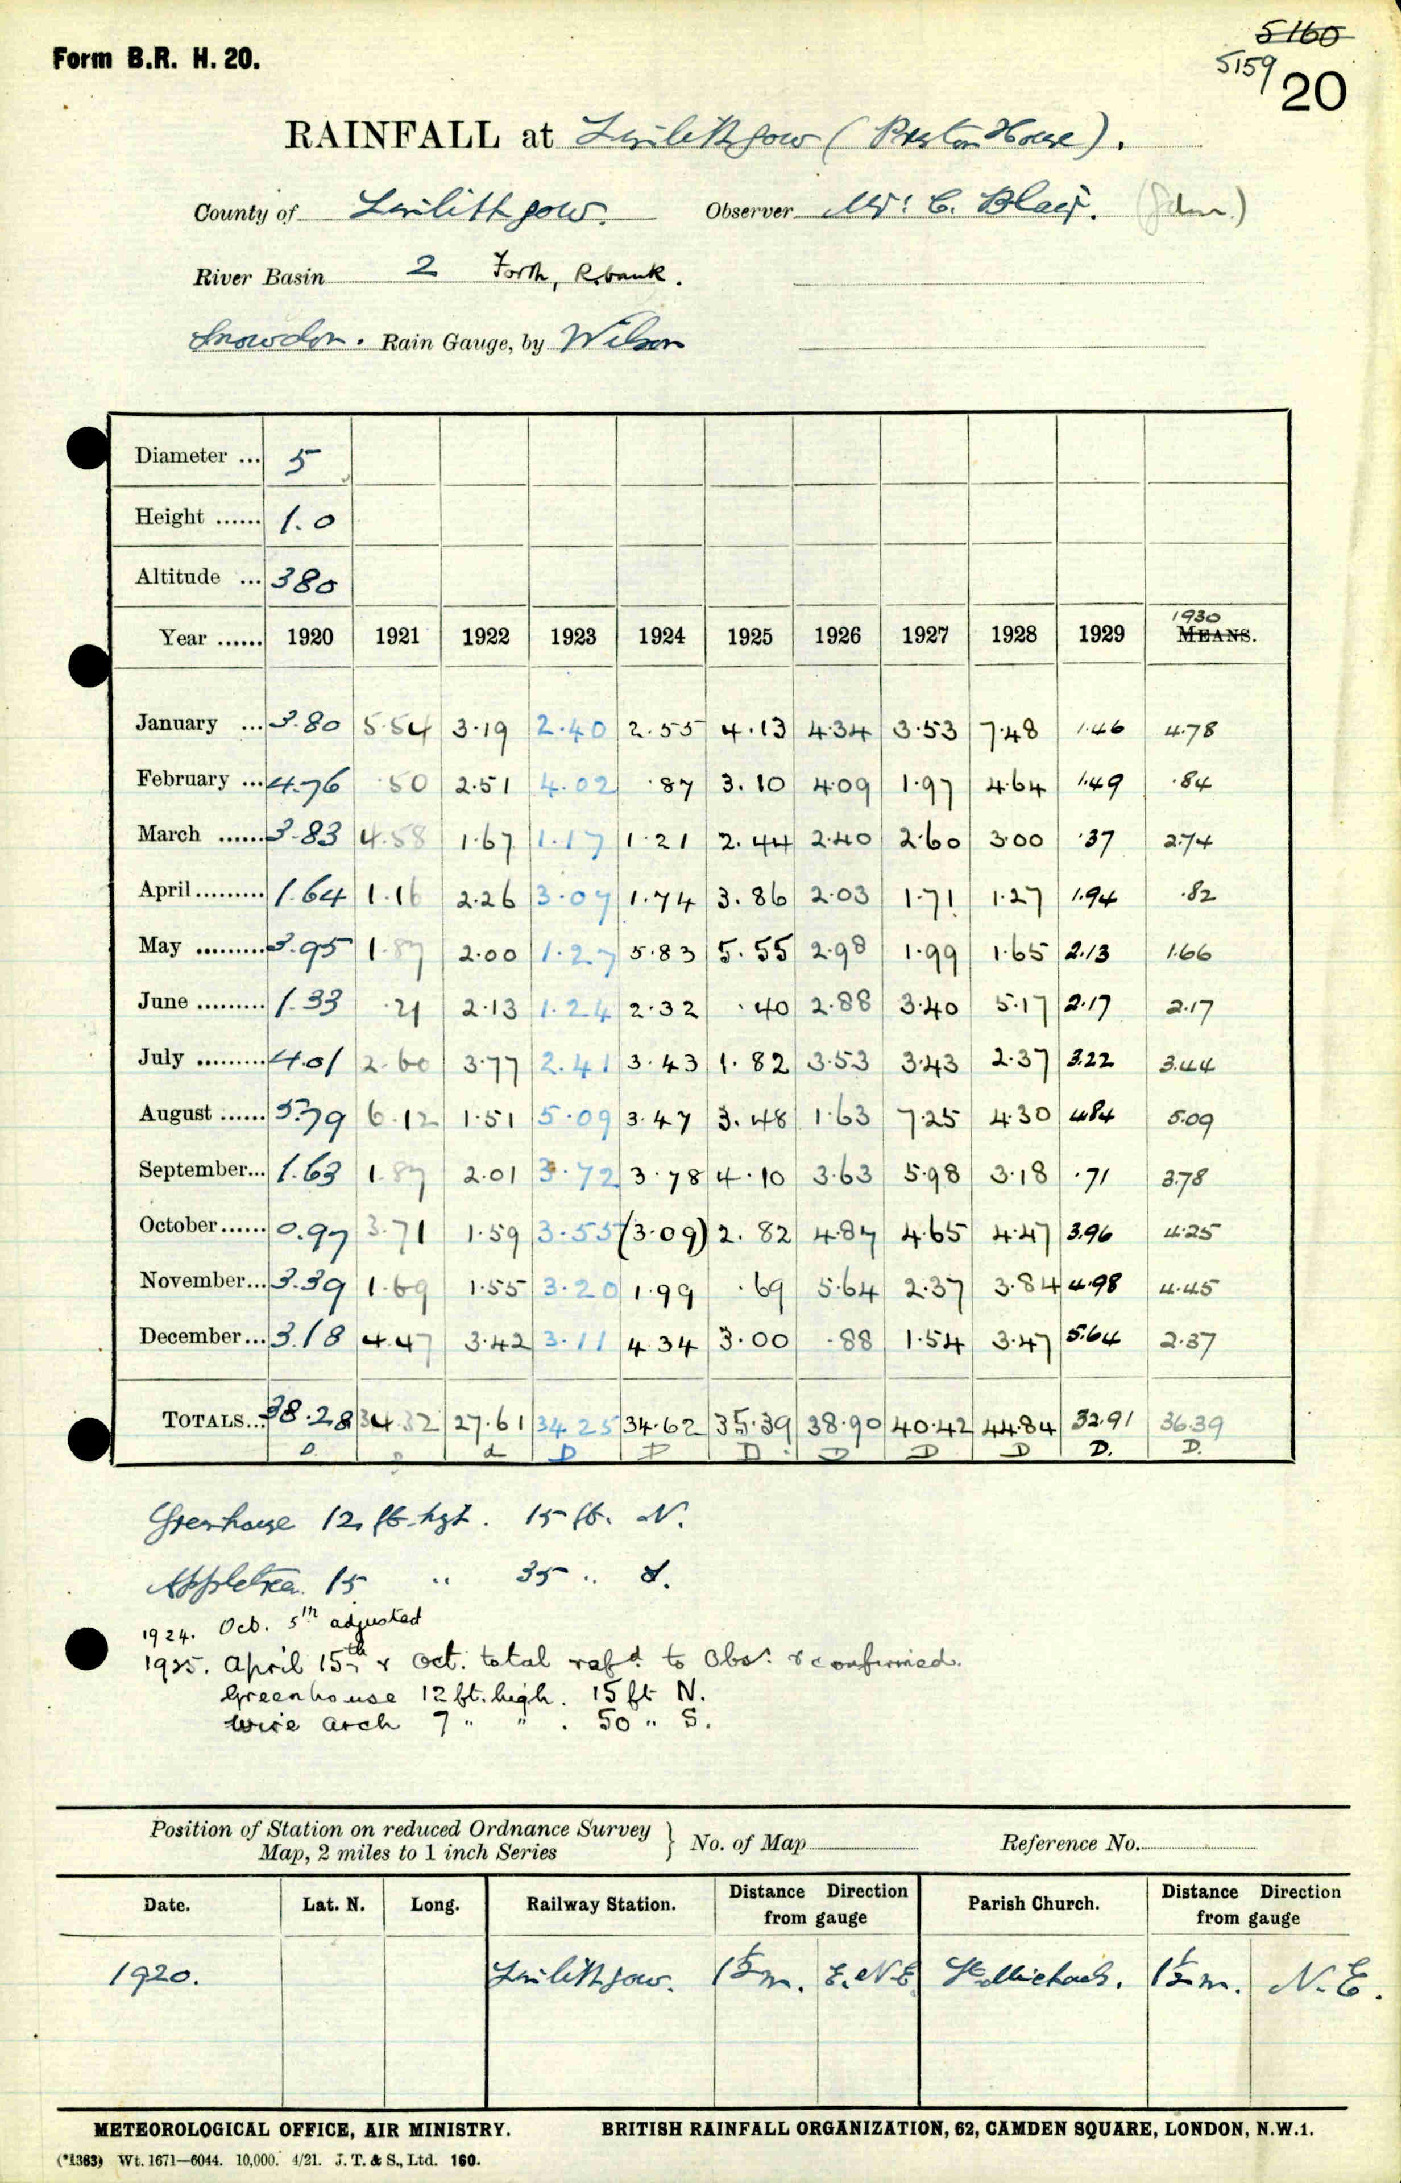 5160
Form B.R. H. 20.
5159
20
RAINFALL at Linlithgow (Preston House).
County of Linlithgow. Observer Mr. C. Blair.
River Basin 2 Forth, R. bank.
Snowdon. Rain Gauge, by Wilson
Diameter ... 5
Height ...... 1.0
Altitude ... 380
1930
Year ...... 1920 1921 1922 1923 1924 1925 1926 1927 1928 1929 MEANS.
January ... 3.80 5.54 3.19 2.40 2.55 4.13 4.34 3.53 7.48 1.46 4.78
February ... 4.76 .50 2.51 4.02 .87 3.10 4.09 1.97 4.64 1.49 .84
March ...... 3.83 4.58 1.67 1.17 1.21 2.44 2.40 2.60 3.00 .37 2.74
April ......... 1.64 1.16 2.26 3.07 1.74 3.86 2.03 1.71 1.27 1.94 .82
May ......... 3.95 1.87 2.00 1.27 5.83 5.55 2.98 1.99 1.65 2.13 1.66
June ......... 1.33 .21 2.13 1.24 2.32 .40 2.88 3.40 5.17 2.17 2.17
July ......... 4.01 2.60 3.77 2.41 3.43 1.82 3.53 3.43 2.37 3.22 3.44
August ...... 5.79 6.12 1.51 5.09 3.47 3.48 1.63 7.25 4.30 4.84 5.09
September... 1.63 1.87 2.01 3.72 3.78 4.10 3.63 5.98 3.18 .71 3.78
October ...... 0.97 3.71 1.59 3.55 (3.09) 2.82 4.87 4.65 4.47 3.96 4.25
November... 3.39 1.69 1.55 3.20 1.99 .69 5.64 2.37 3.84 4.98 4.45
December... 3.18 4.47 3.42 3.11 4.34 3.00 .88 1.54 3.47 5.64 2.37
TOTALS... 38.28 34.32 27.61 34.25 34.62 35.39 38.90 40.42 44.84 32.91 36.39
D D d D D D D D D D. D.
Greenhouse 12 ft. hgt. 15 ft. N.
Appletree 15 " 35 " S.
1924. Oct. 5th adjusted
1925. April 15th & Oct. total refd. to Obsr. & confirmed.
Greenhouse 12 ft. high. 15 ft N.
Wire arch 7 " " . 50 " S.
Position of Station on reduced Ordnance Survey
Map, 2 miles to 1 inch Series } No. of Map Reference No.
Date. Lat. N. Long. Railway Station. Distance Direction from gauge Parish Church. Distance Direction from gauge
1920. Linlithgow. 1½ m. E.N.E. St. Michaels. 1½ m. N.E.
METEOROLOGICAL OFFICE, AIR MINISTRY. BRITISH RAINFALL ORGANIZATION, 62, CAMDEN SQUARE, LONDON, N.W.1.
(*1363) Wt. 1671—6044. 10,000. 4/21. J. T. & S., Ltd. 160.